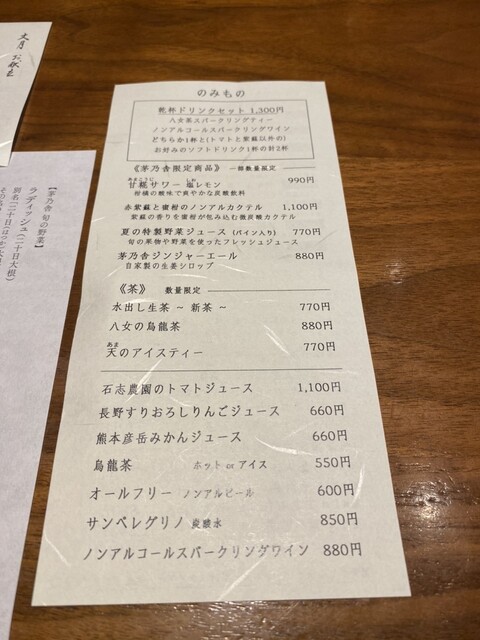 文月 お献立
【茅乃舎 旬の野菜】
ラディッシュ(二十日大根)
のみもの
乾杯ドリンクセット 1,300円
八女茶スパークリングティー
ノンアルコールスパークリングワイン
どちらか1杯と(トマトと紫蘇以外の)
お好みのソフトドリンク1杯の計2杯
《茅乃舎限定商品》 一部数量限定
あまこうじ しお
甘糀サワー 塩レモン 990円
柑橘の酸味で爽やかな炭酸飲料
赤紫蘇と蜜柑のノンアルカクテル 1,100円
紫蘇の香りを蜜柑が包み込む微炭酸カクテル
夏の特製野菜ジュース (パイン入り) 770円
旬の果物や野菜を使ったフレッシュジュース
茅乃舎ジンジャーエール 880円
自家製の生姜シロップ
《茶》 数量限定
水出し生茶 ~ 新茶 ~ 770円
八女の烏龍茶 880円
あま
天のアイスティー 770円
石志農園のトマトジュース 1,100円
長野すりおろしりんごジュース 660円
熊本彦岳みかんジュース 660円
烏龍茶 ホット or アイス 550円
オールフリー ノンアルビール 600円
サンペレグリノ 炭酸水 850円
ノンアルコールスパークリングワイン 880円